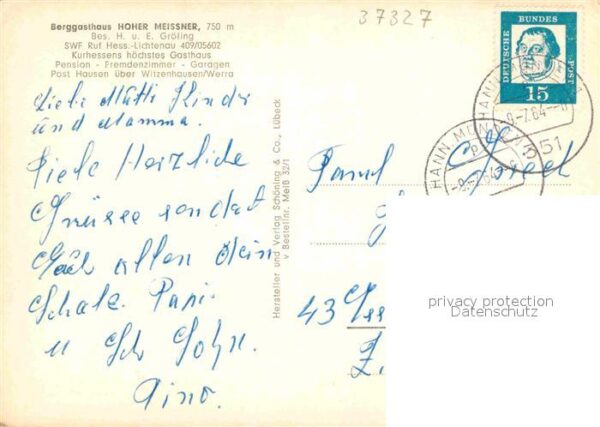 37327
Berggasthaus HOHER MEISSNER, 750 m
Bes. H. u. E. Gröling
SWF Ruf Hess.-Lichtenau 409/05602
Kurhessens höchstes Gasthaus
Pension - Fremdenzimmer - Garagen
Post Hausen über Witzenhausen/Werra
Liebe Mutti Kinder
und Mamma.
Viele Herzliche
Grüsse sendet
Euch allen Dein
Schatz. Papi.
u Sohn.
Gino.
Hersteller und Verlag Schöning & Co., Lübeck
v Bestellnr. Meiß 32/1
DEUTSCHE BUNDESPOST
15
HANN. MÜNDEN
-9.-7.64
351
43
privacy protection
Datenschutz